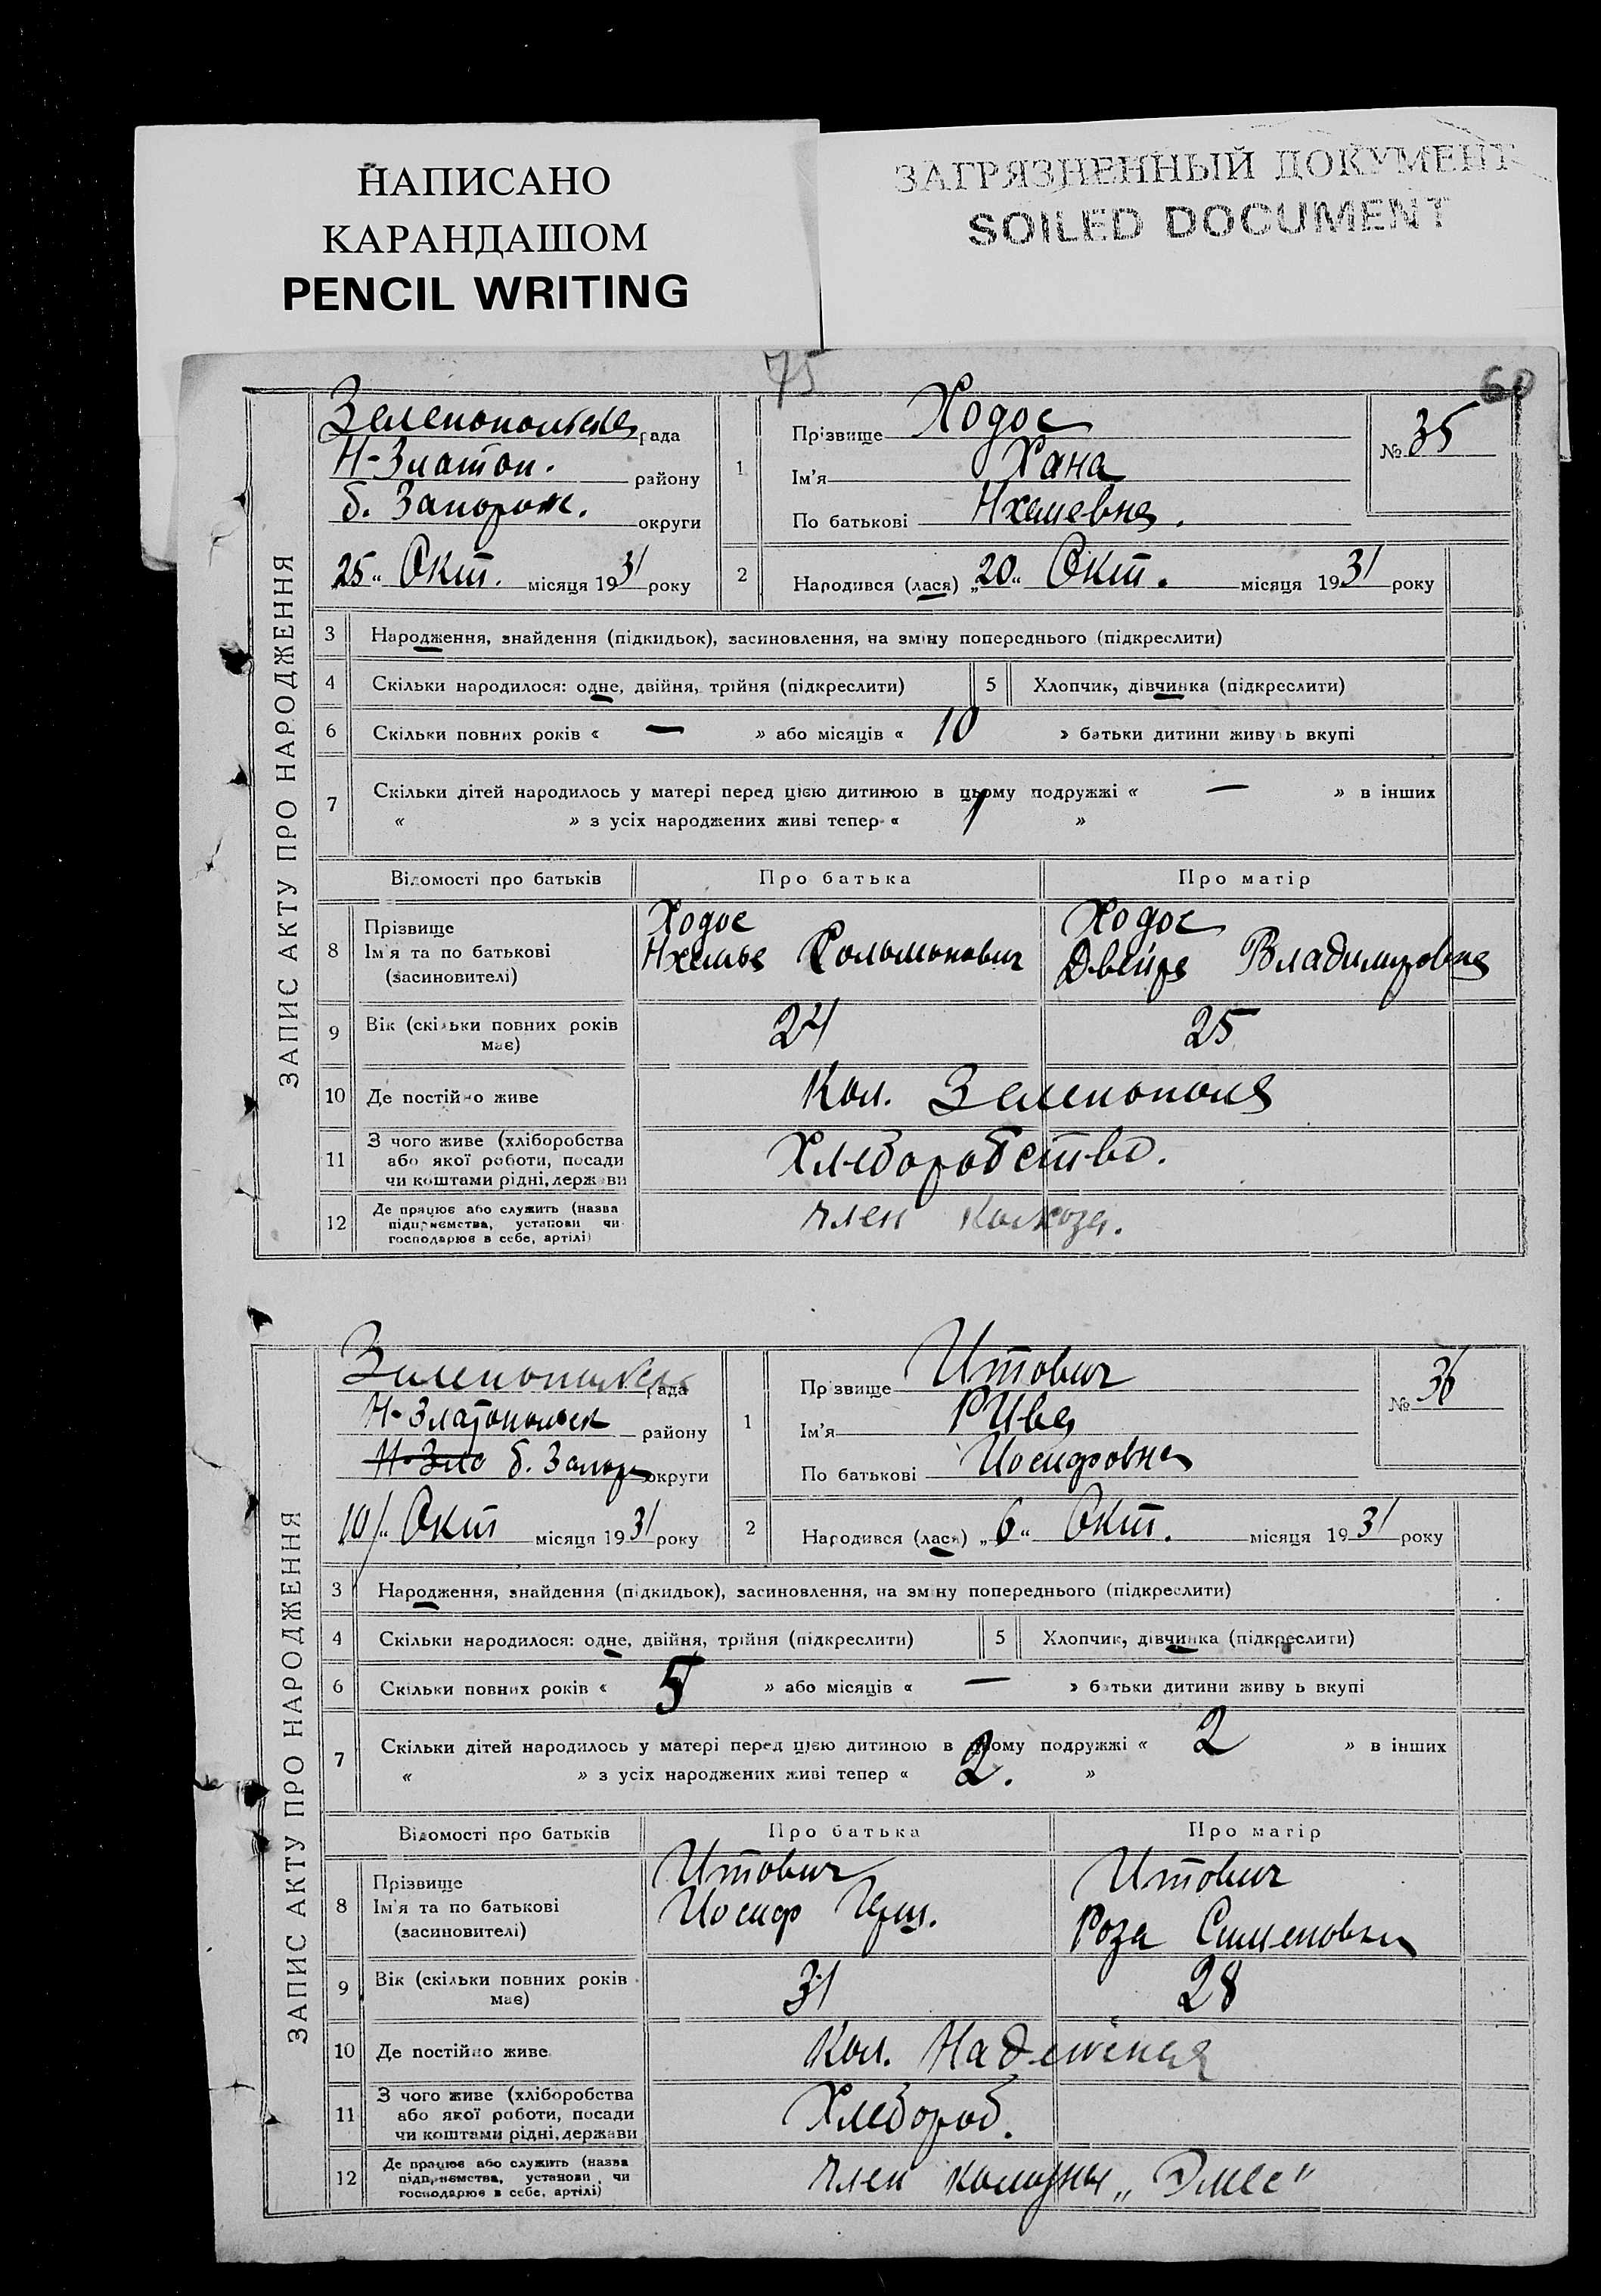 НАПИСАНО
КАРАНДАШОМ
PENCIL WRITING
ЗАГРЯЗНЕННЫЙ ДОКУМЕНТ
SOILED DOCUMENT
75
60
ЗАПИС АКТУ ПРО НАРОДЖЕННЯ
Зеленопольская рада
Н-Златоп. району
б. Запорож. округи
25 „ Окт. місяця 1931 року
1
Прізвище Ходос
Ім'я Хана
По батькові
№ 35
2
Народився (лася) „20„ Окт. місяця 1931 року
3 Народження, знайдення (підкидьок), засиновлення, на зміну попереднього (підкреслити)
4 Скільки народилося: одне, двійня, трійня (підкреслити)
5 Хлопчик, дівчинка (підкреслити)
6 Скільки повних років « — » або місяців « 10 » батьки дитини живуть вкупі
7 Скільки дітей народилось у матері перед цією дитиною в цьому подружжі « — » в інших
« » з усіх народжених живі тепер « 1 »
Відомості про батьків Про батька Про матір
8 Прізвище
Ім'я та по батькові
(засиновителі)
Ходос
Ходос
Двейра Владимировна
9 Вік (скільки повних років має) 24 25
10 Де постійно живе Кол. Зеленополя
11 З чого живе (хліборобства
або якої роботи, посади
чи коштами рідні, держави
Хлеборобство.
12 Де працює або служить (назва
підприємства, установи чи
господарює в себе, артілі)
член колхоза.
ЗАПИС АКТУ ПРО НАРОДЖЕННЯ
Зеленопольская рада
Н-Златопольск району
Н-Зла б. Запор округи
10 „ Окт місяця 1931 року
1
Прізвище Итович
Ім'я Рива
По батькові Иосифовна
№ 36
2
Народився (лася) „6„ Окт. місяця 1931 року
3 Народження, знайдення (підкидьок), засиновлення, на зміну попереднього (підкреслити)
4 Скільки народилося: одне, двійня, трійня (підкреслити)
5 Хлопчик, дівчинка (підкреслити)
6 Скільки повних років « 5 » або місяців « — » батьки дитини живуть вкупі
7 Скільки дітей народилось у матері перед цією дитиною в цьому подружжі « 2 » в інших
« » з усіх народжених живі тепер « 2. »
Відомості про батьків Про батька Про матір
8 Прізвище
Ім'я та по батькові
(засиновителі)
Итович
Иосиф Герш.
Итович
Роза Сименовна
9 Вік (скільки повних років має) 31 28
10 Де постійно живе Кол. Надежная
11 З чого живе (хліборобства
або якої роботи, посади
чи коштами рідні, держави
Хлебороб.
12 Де працює або служить (назва
підприємства, установи чи
господарює в себе, артілі)
член комуны „Эмес"